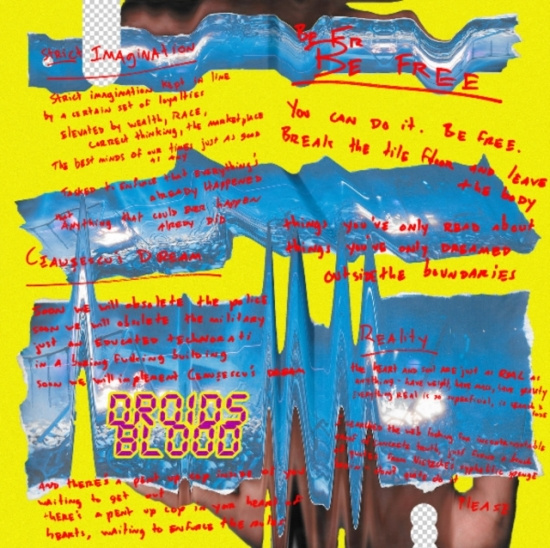 Strict Imagination
Strict imagination kept in line
by a certain set of loyalties
Elevated by wealth, RACE,
correct thinking, the marketplace
The best minds of our times just as good
as any
Tasked to enforce that everything's
already happened
Anything that could ever happen
already did
Ceaușescu's Dream
Soon we will obsolete the police
soon we will obsolete the military
just an educated technorati
in a building
soon we will implement Ceaușescu's dream
DROIDS
BLOOD
And there's a pent up cop inside of you
waiting to get out
there's a pent up cop in your heart of
hearts, waiting to enforce the rules
BE FR
BE FREE
You can do it. BE FREE.
Break the tile floor and leave
the body
things you've only read about
things you've only DREAMED
outside the boundaries
Reality
the heart and soul are just as REAL as
anything - have weight, have mass, have gravity
everything REAL is so
the web looking for incontrovertible
concrete truth, just
don't quite do it
PLEASE